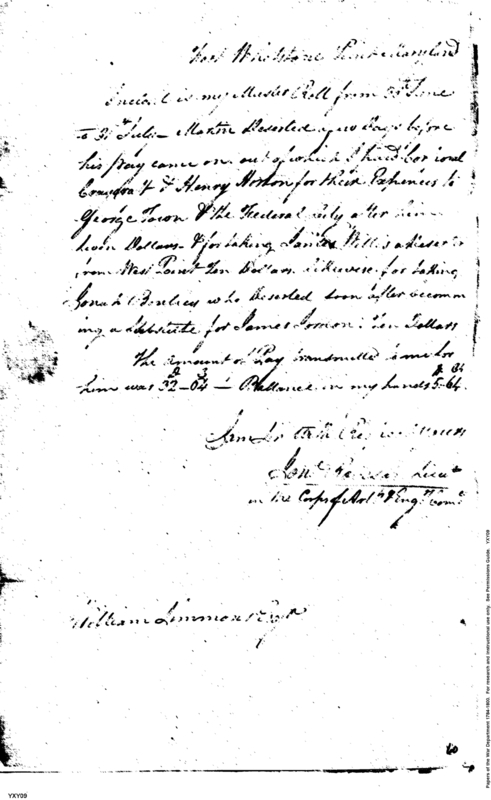 Fort Whetstone Point Maryland
Inclosed is my Muster Roll from 30th June
to 31st July - Martin Deserted a few Days before
his pay came on, out of which I paid Corporal
Crawford & Henry for their Expences to
George Town & the Federal City after him
Dollars & for taking James Willis a Deserter
from West Point Ten Dollars likewise for taking
Jonah who Deserted soon after becom
ing a Substitute for James Ten Dollars
The amount of Pay transmitted to me for
him was 32-04 - Ballance in my hands 5-64.
I am Sir with Respect Yours
Lieut
in the Corps of Art. & Eng. Com.
William Simmons Esqr
60
YXY09
Papers of the War Department 1784-1800. For research and instructional use only. See Permissions Guide. YXY09